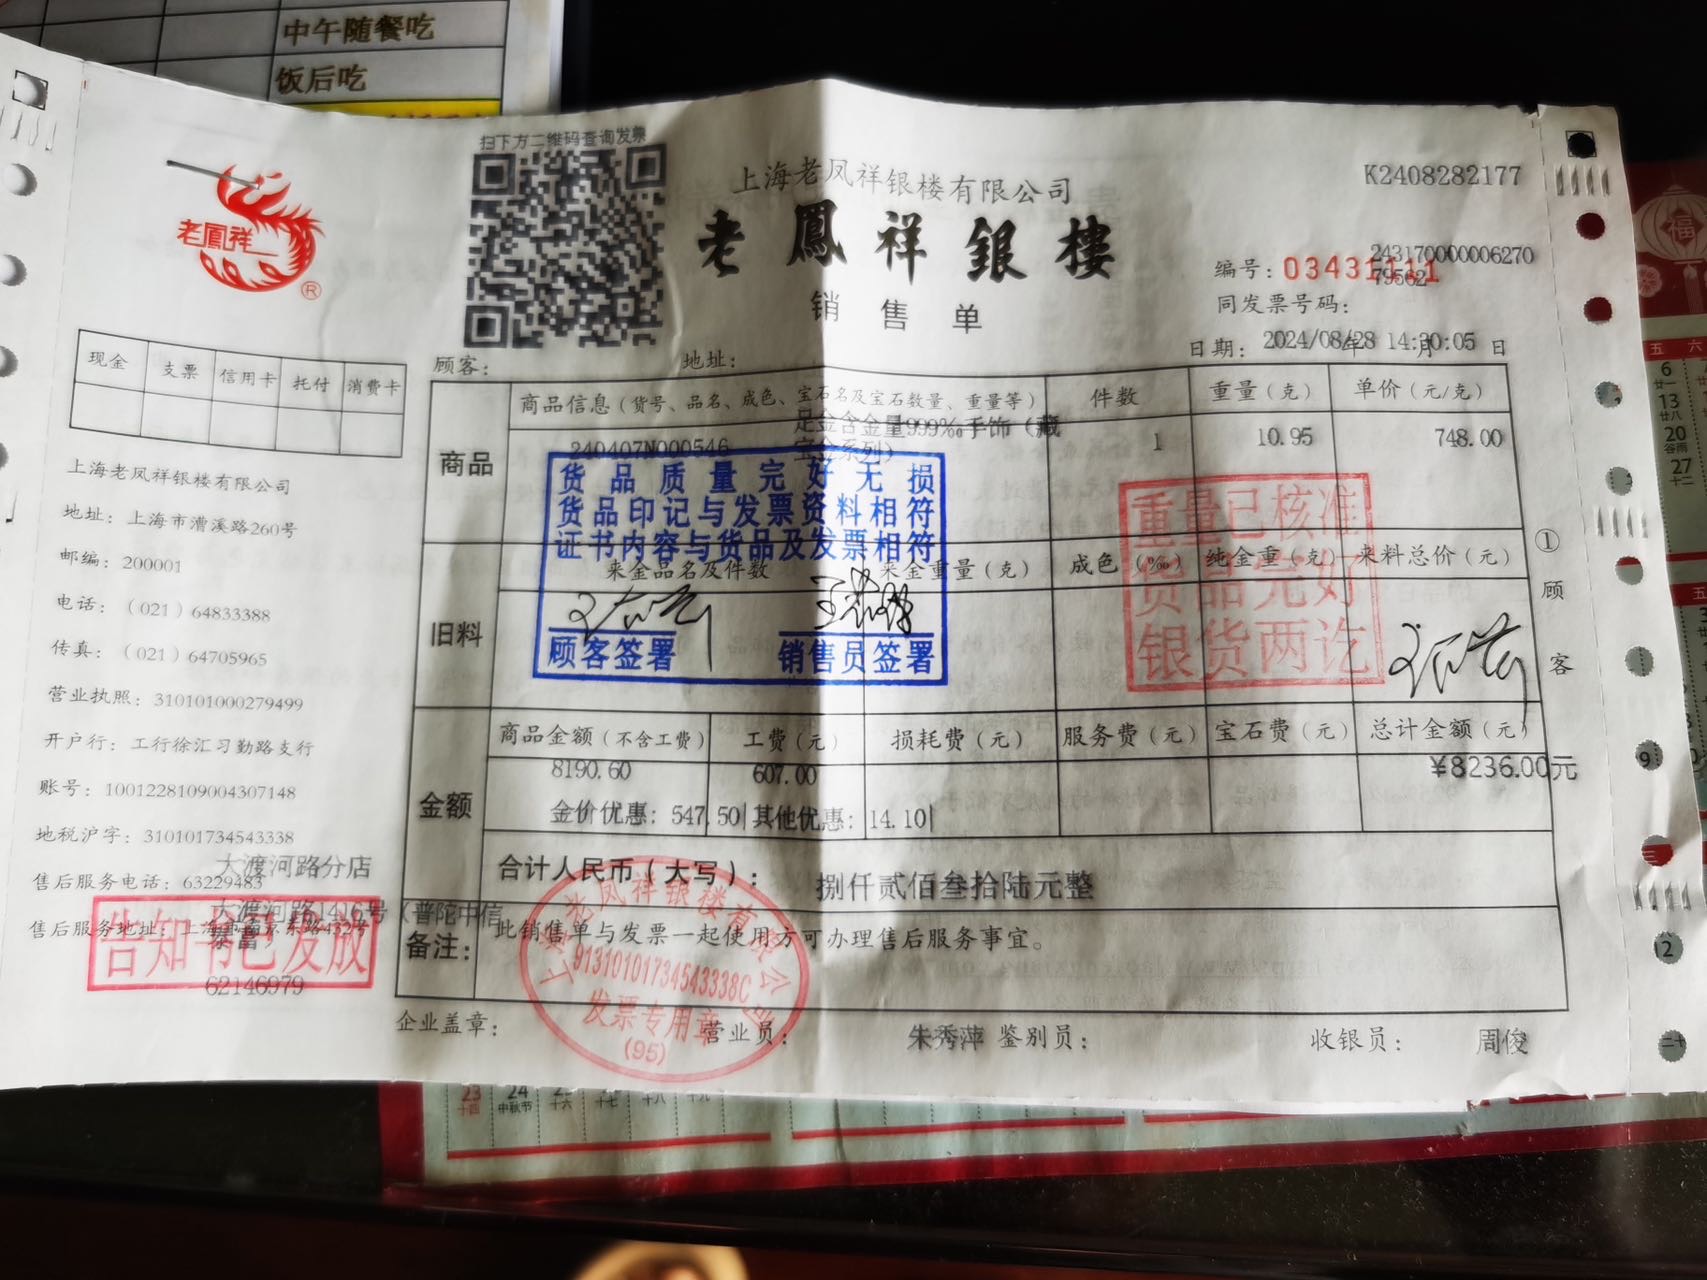 中午随餐吃
饭后吃
扫下方二维码查询发票
上海老凤祥银楼有限公司
K2408282177
老鳳祥
®
老鳳祥銀樓
销售单
编号：03431111
243170000006270
79562
同发票号码：
日期： 2024/08/28 14:30:05 年 月 日
顾客： 地址：
现金 支票 信用卡 托付 消费卡
商品信息（货号、品名、成色、宝石名及宝石数量、重量等） 件数 重量（克） 单价（元/克）
商品
240407N000546 足金含金量999‰手饰（藏宝金系列） 1 10.95 748.00
货品质量完好无损
货品印记与发票资料相符
证书内容与货品及发票相符
顾客签署 销售员签署
重量已核准
货品完好
银货两讫
旧料
来金品名及件数 来金重量（克） 成色（‰） 纯金重（克） 来料总价（元）
①
顾
客
金额
商品金额（不含工费） 工费（元） 损耗费（元） 服务费（元） 宝石费（元） 总计金额（元）
8190.60 607.00 ¥8236.00元
金价优惠：547.50|其他优惠：14.10|
合计人民币（大写）： 捌仟贰佰叁拾陆元整
备注： 此销售单与发票一起使用方可办理售后服务事宜。
企业盖章： 营业员： 朱秀萍 鉴别员： 收银员： 周俊
上海老凤祥银楼有限公司
913101017345433338C
发票专用章
(95)
上海老凤祥银楼有限公司
地址：上海市漕溪路260号
邮编：200001
电话：（021）64833388
传真：（021）64705965
营业执照：310101000279499
开户行：工行徐汇习勤路支行
账号：1001228109004307148
地税沪字：310101734543338
大渡河路分店
售后服务电话：63229483
大渡河路1416号（普陀中信泰富
售后服务地址：上海市南京东路432号
告知书已发放
62146979
五 六
6
廿一
13
廿八
20
谷雨
27
十二
福
23
十四
24
中秋节
十六 十七 十八 十九